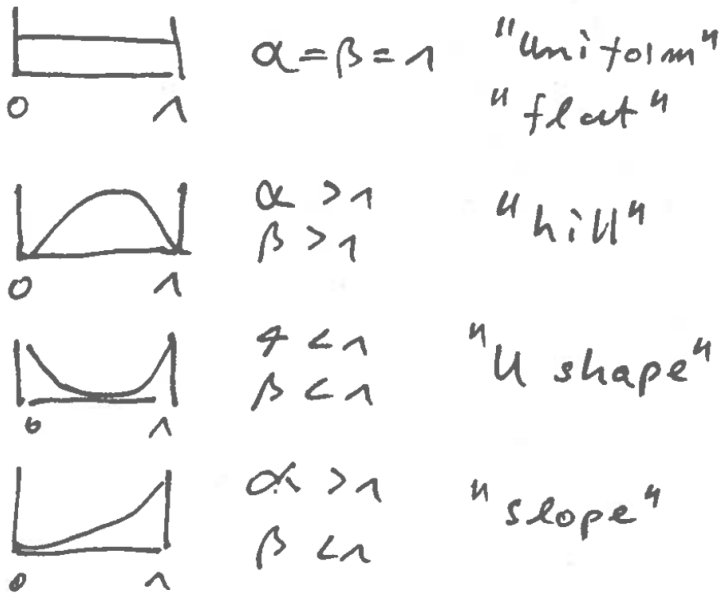 α = β = 1 "uniform"
0 1 "flat"
α > 1
β > 1 "hill"
0 1
α < 1
β < 1 "U shape"
0 1
α > 1
β < 1 "slope"
0 1